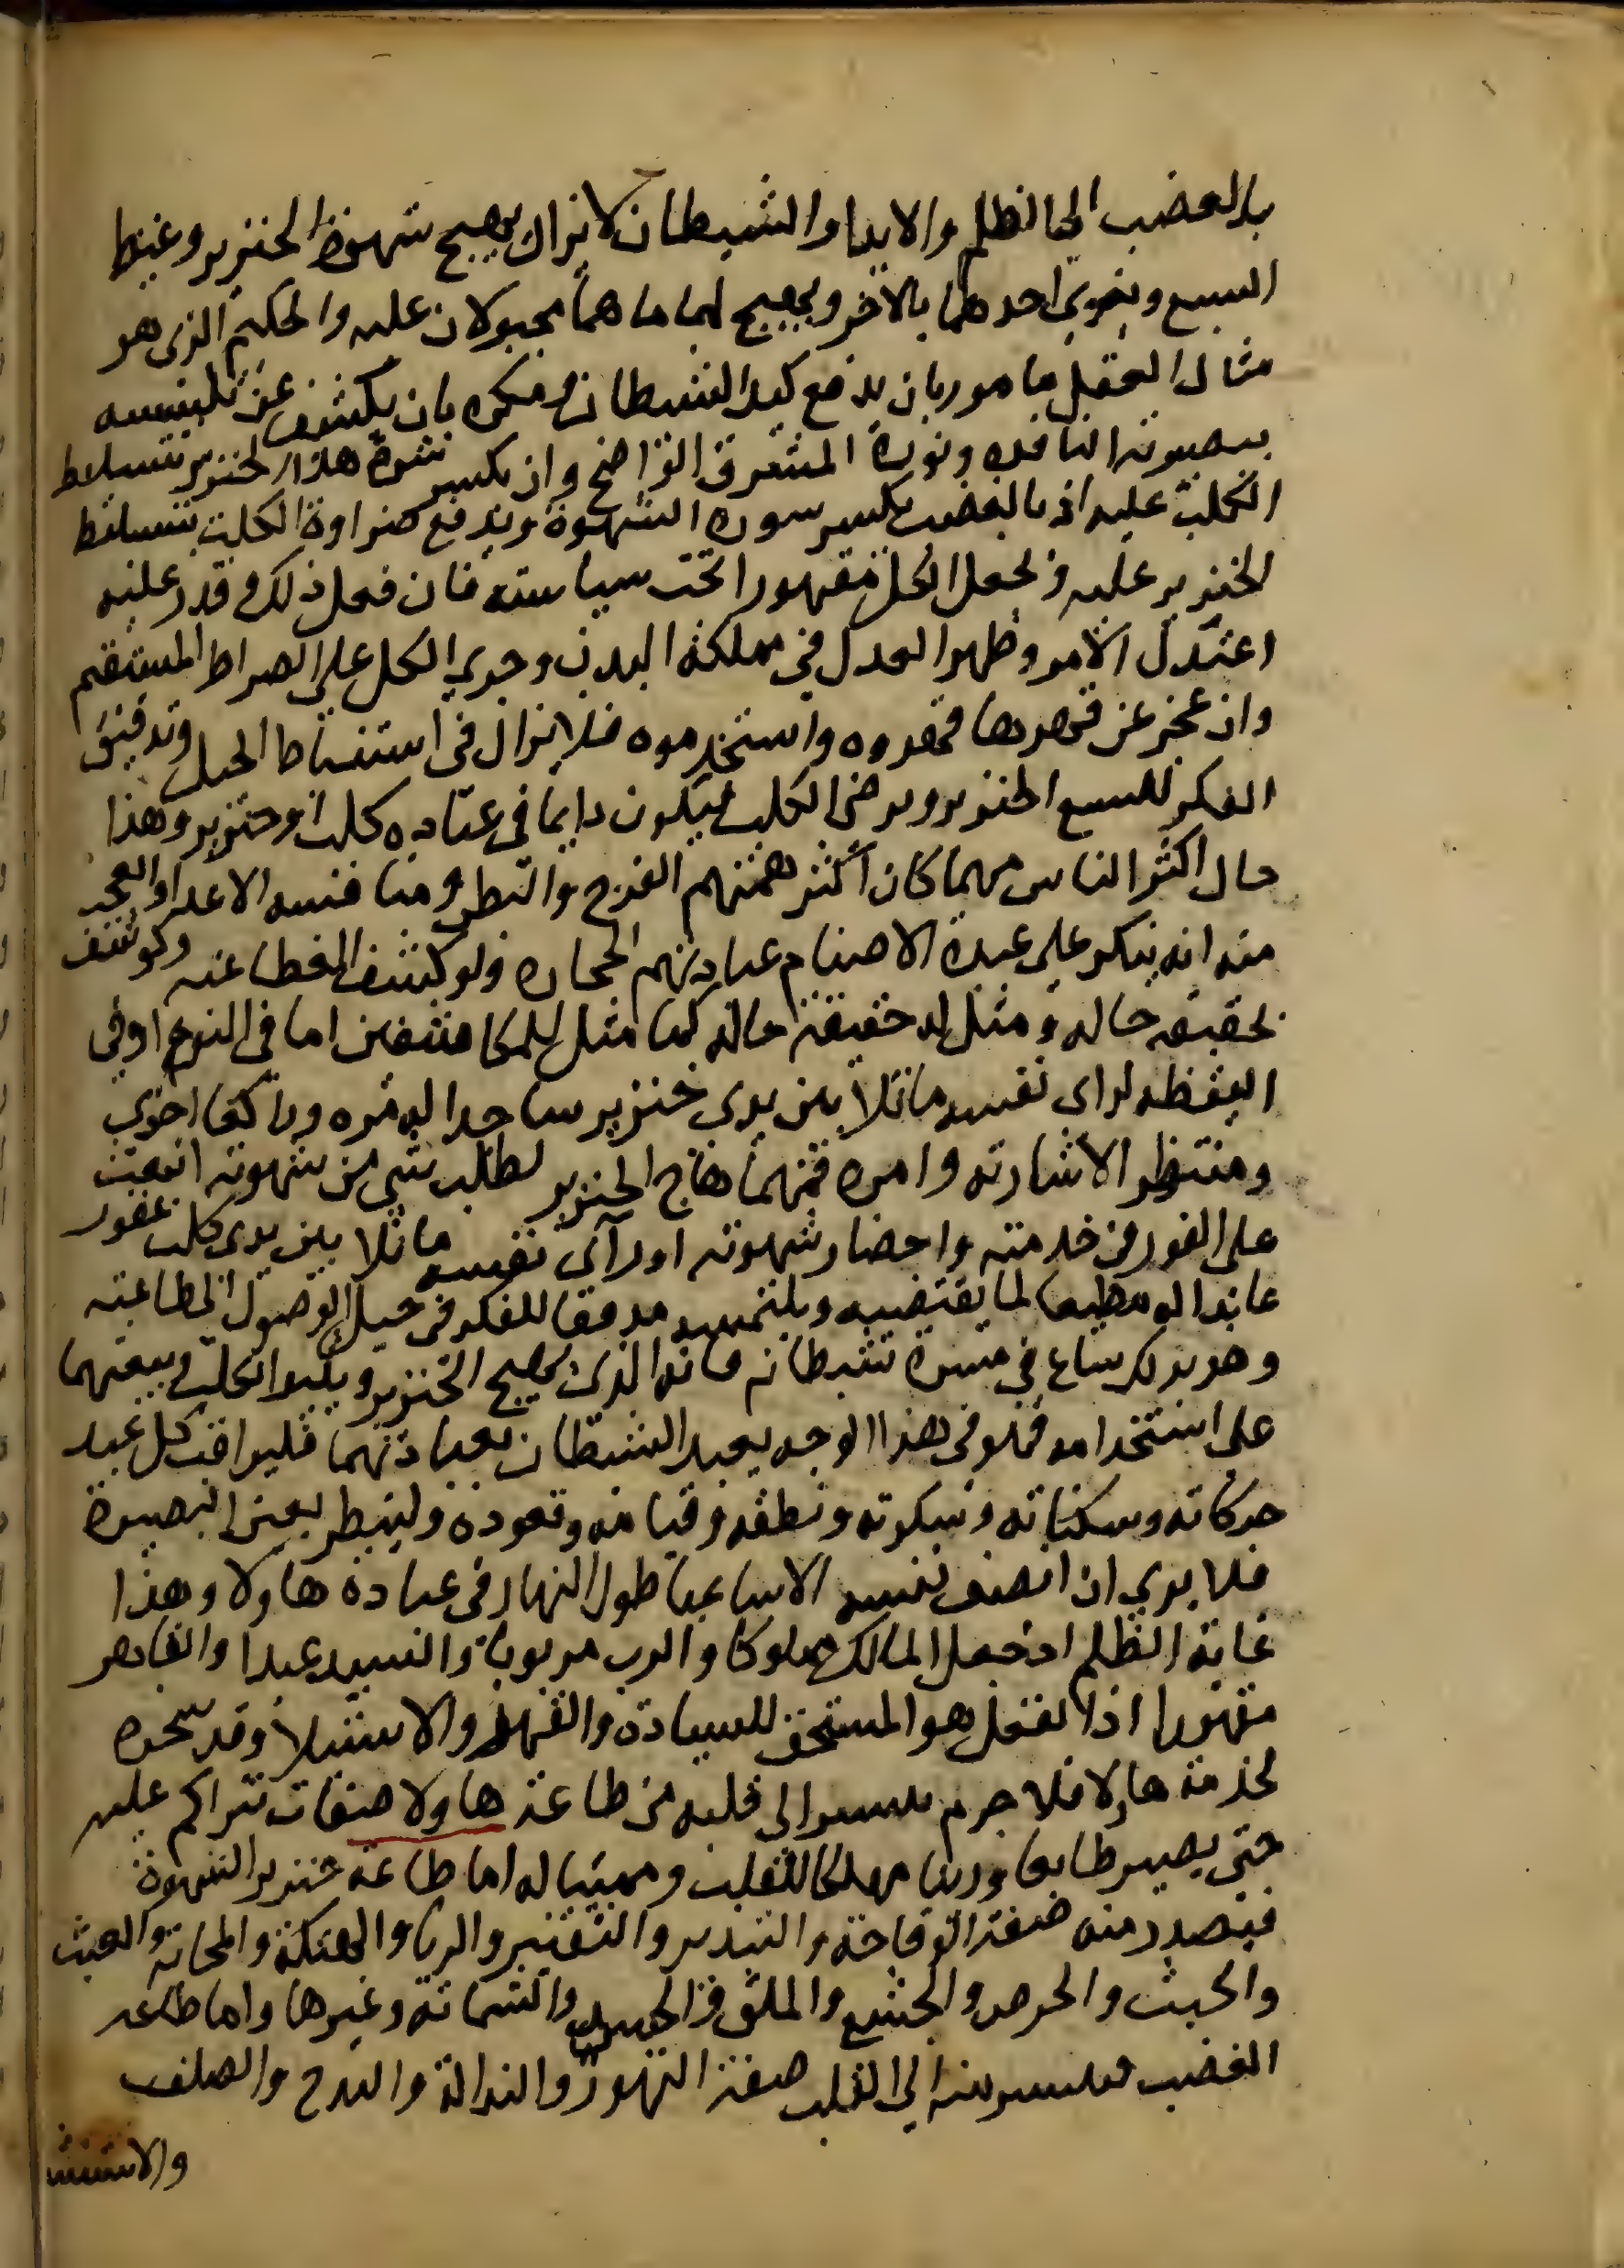 بالغضب الى الظلم والايذا والشيطان لا يزال يهيج شهوة الخنزير وغيظ
السبع ويغري احدهما بالاخر ويهيج لهما ما هما مجبولان عليه والحكيم الذي هو
مثال العقل مامور بان يدفع كيد الشيطان ومكره بان يكشف عن تلبيسه
ببصيرته النافذه ونوره المشرق الواضح وان يكسر شره هذا الخنزير بتسليط
الكلب عليه اذ بالغضب يكسر سورة الشهوة ويدفع ضراوة الكلب بتسليط
الخنزير عليه ويجعل الكل مقهورا تحت سياسته فان فعل ذلك وقدر عليه
اعتدل الامر وظهر العدل في مملكة البدن وجري الكل على الصراط المستقيم
وان عجز عن قهرها قهروه واستخدموه فلا يزال في استنباط الحيل وتدقيق
الفكر ليشبع الخنزير ويرضى الكلب فيكون دايما في عبادة كلب او خنزير وهذا
حال اكثر الناس مهما كان اكثر همتهم الفرج والبطن ومنافسه الاعدا والعجب
منه انه ينكر على عبدة الاصنام عبادتهم الحجاره ولو كشف الغطا عنه وكوشف
بحقيقه حاله ومثل له حقيقة حاله كما مثل للمكاشفين اما في النوم او في
اليقظه لراى نفسه ماثلا بين يدى خنزير ساجدا له مره وراكعا اخرى
ومنتظرا لاشارته وامره فمهما هاج الخنزير لطلب شي من شهوته انبعث
على الفور في خدمته واحضار شهوته او رآى نفسه ماثلا بين يدى كلب عقور
عابدا له مطيعا لما يقتضيه ويلتمسه مدققا للفكر في حيل الوصول الى طاعته
وهو بذلك ساع في مسرة شيطانه فانه الذى يهيج الخنزير ويثير الكلب ويبعثهما
على استخدامه فهو في هذا الوجه يعبد الشيطان بعبادتهما فليراقب كل عبد
حركاته وسكناته وسكوته ونطقه وقيامه وقعوده ولينظر بعين البصيرة
فلا يرى ان انصف نفسه الا ساعيا طول النهار في عبادة هاولا وهذا
غاية الظلم اذ جعل المالك مملوكا والرب مربوبا والسيد عبدا والقاهر
مقهورا اذ العقل هو المستحق للسيادة والقهر والاستيلا وقد سخره
لخدمة هاولا فلا جرم ينتشر الى قلبه من طاعة هاولا صفات تتراكم عليه
حتى يصير طابعا ورينا مهلكا للقلب ومميتا له اما طاعة خنزير الشهوة
فيصدر منه صفة الوقاحة والتبذير والتقتير والريا والهتكة والمجانة والعبث
والخبث والحرص والجشع والملق والحسد والشماتة وغيرها واما طاعة
الغضب فينتشر منه الى القلب صفة التهور والنذالة والبذخ والصلف
والاستشا